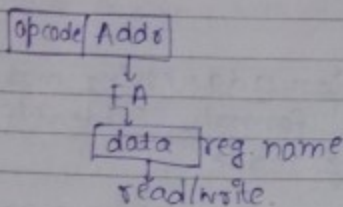 opcode Addr
EA
data reg. name
read/write.